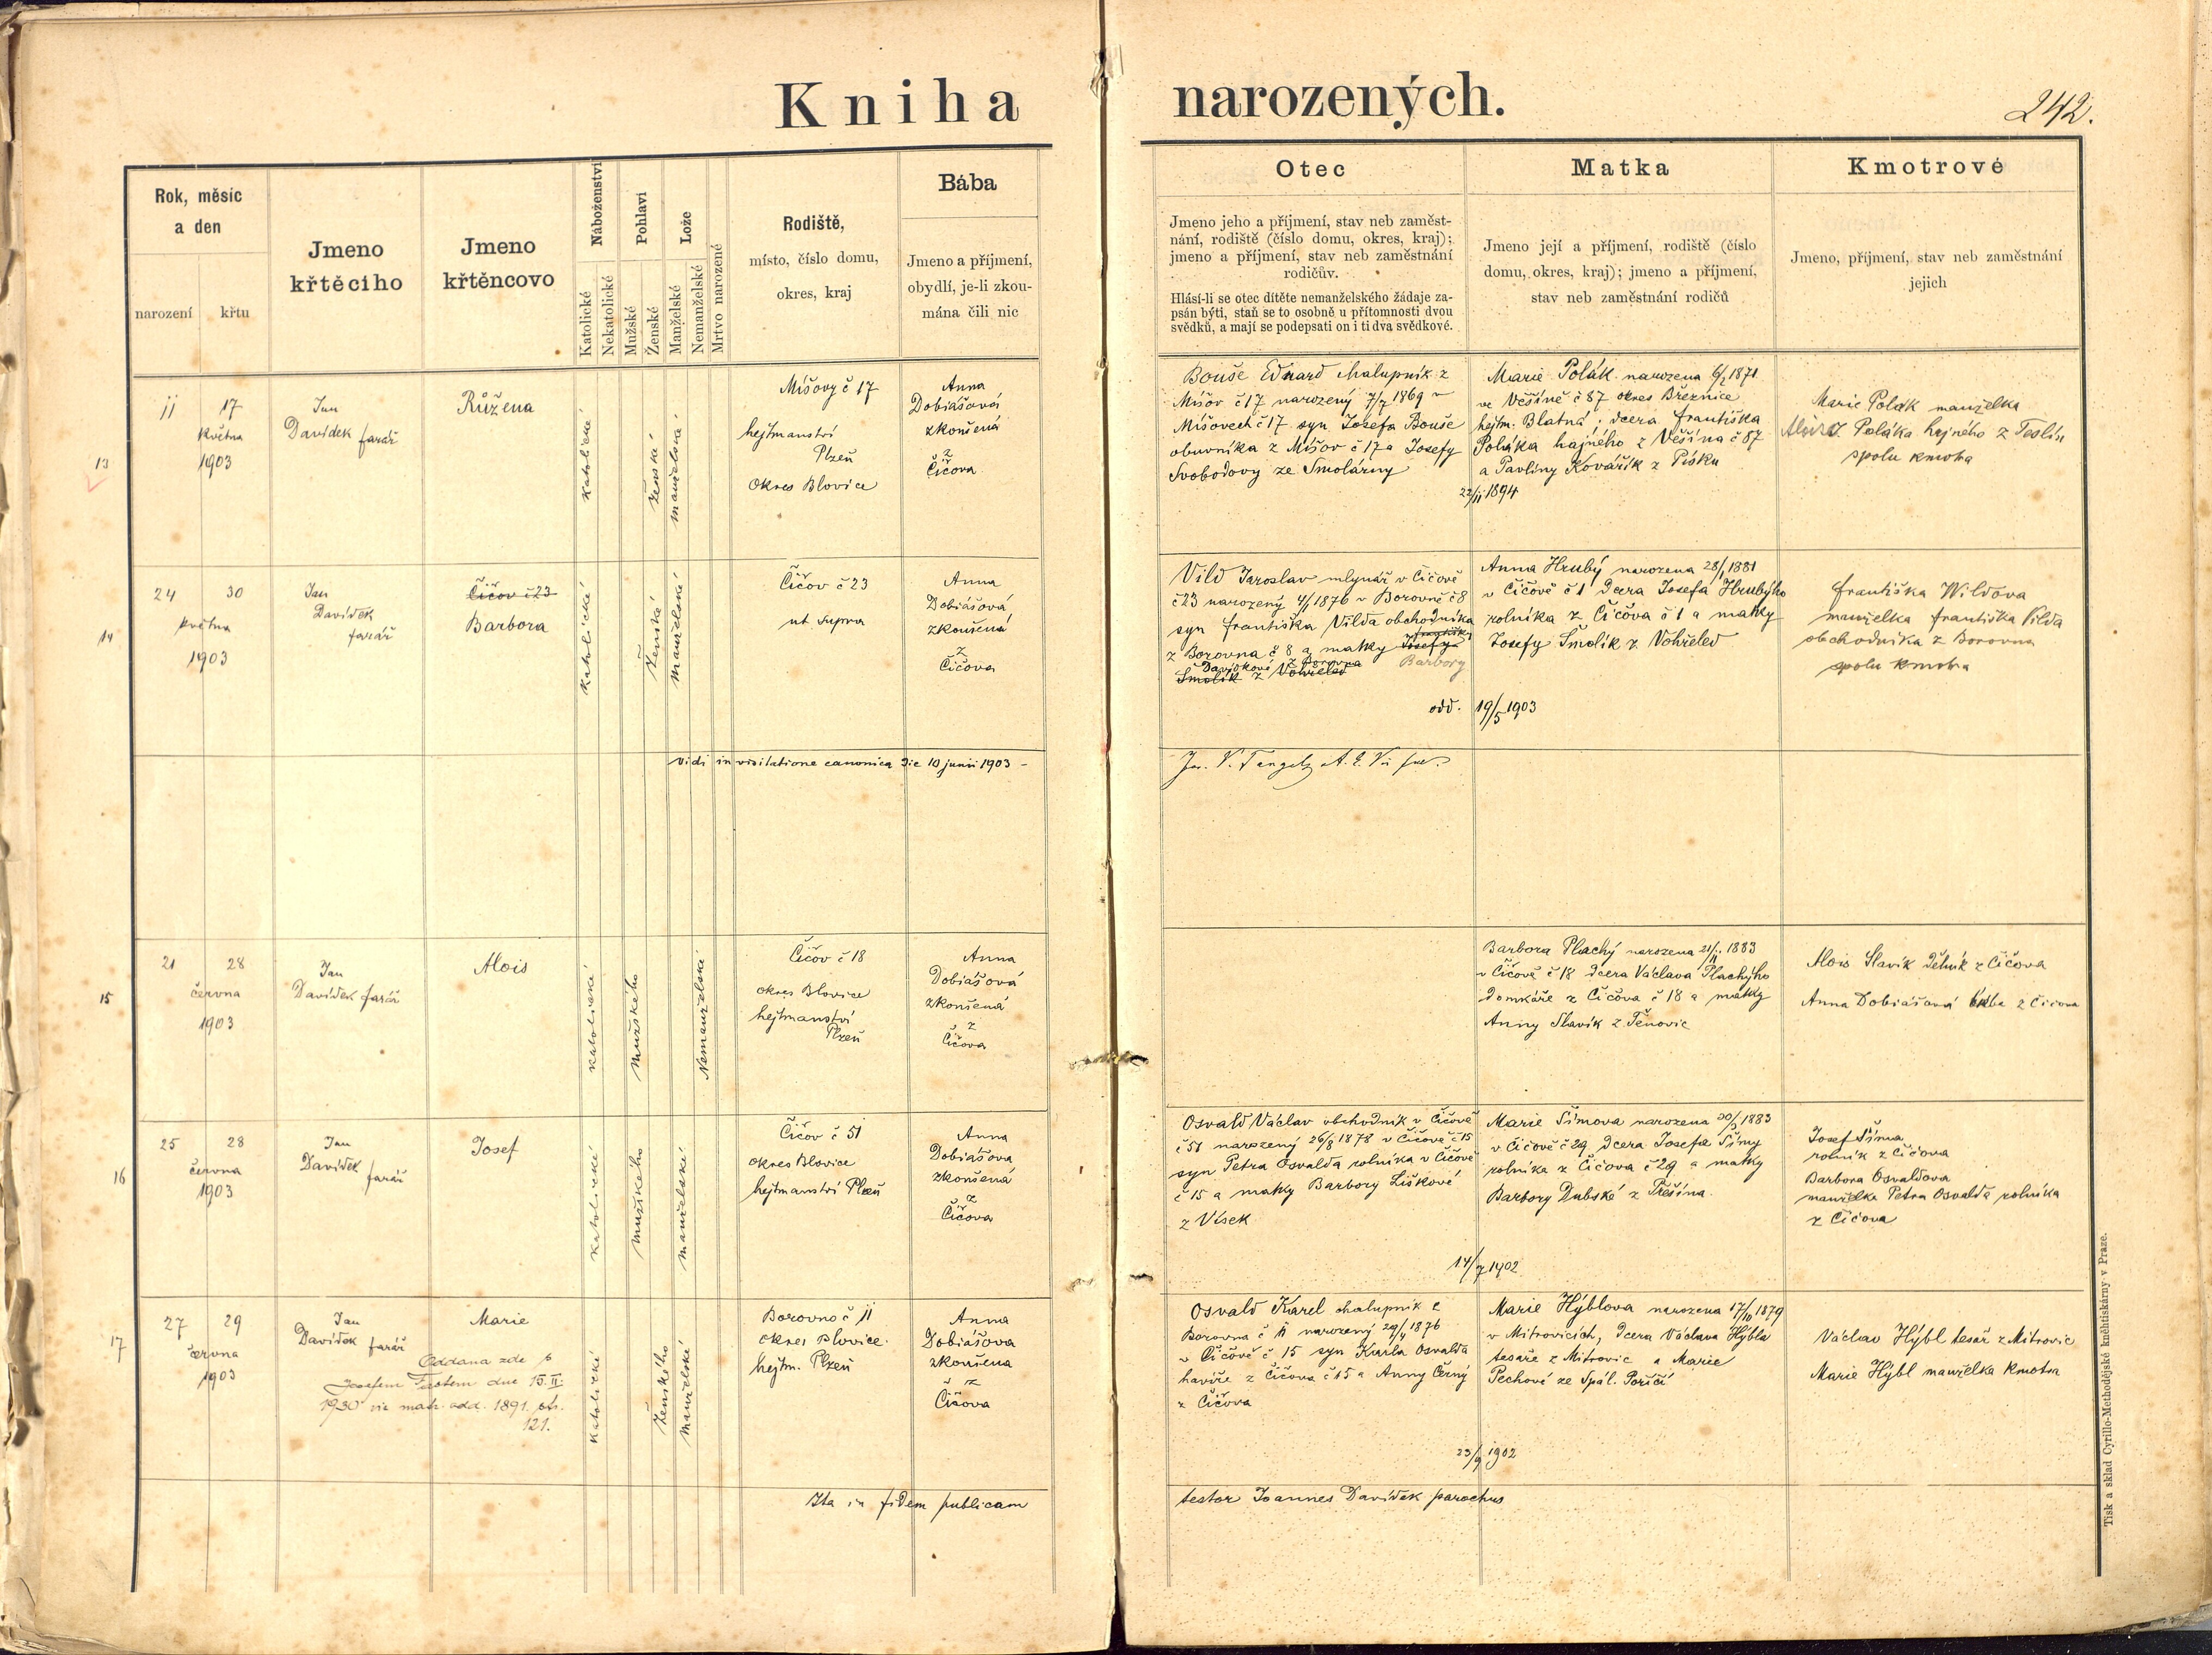 Kniha narozených.
242.
Rok, měsíc
a den
narození
křtu
Jmeno
křtěcího
Jmeno
křtěncovo
Náboženství
Katolické
Nekatolické
Pohlaví
Mužské
Ženské
Lože
Manželské
Nemanželské
Mrtvo narozené
Rodiště,
místo, číslo domu,
okres, kraj
Bába
Jmeno a příjmení,
obydlí, je-li zkou-
mána čili nic
Otec
Jmeno jeho a příjmení, stav neb zaměst-
nání, rodiště (číslo domu, okres, kraj);
jmeno a příjmení, stav neb zaměstnání
rodičův.
Hlásí-li se otec dítěte nemanželského žádaje za-
psán býti, staň se to osobně u přítomnosti dvou
svědků, a mají se podepsati on i ti dva svědkové.
Matka
Jmeno její a příjmení, rodiště (číslo
domu, okres, kraj); jmeno a příjmení,
stav neb zaměstnání rodičů
Kmotrové
Jmeno, příjmení, stav neb zaměstnání
jejich
13
11 17
května
1903
Jan
Davídek farář
Růžena
katolické
ženské
manželské
Míšovy č 17
hejtmanství
Plzeň
okres Blovice
Anna
Dobiášová
zkoušená
z
Čičova
Bouše Eduard chalupník z
Míšov č 17 narozený 7/7 1869 v
Míšovech č 17 syn Josefa Bouše
obuvníka z Míšov č 17 a Josefy
Svobodovy ze Smolárny
Marie Polák narozena 6/2 1871
ve Věšíně č 87 okres Březnice
hejtm. Blatná, dcera Františka
Poláka hajného z Věšína č 87
a Pavlíny Kovářík z Písku
22/11 1894
Marie Polák manželka
Aloisa Poláka hajného z Teslín
spolu kmotra
14
24 30
května
1903
Jan
Davídek
farář
Čičov č 23
Barbora
katolické
Ženská
manželské
Čičov č 23
ut supra
Anna
Dobiášová
zkoušená
z
Čičova
Vild Jaroslav mlynář v Čičově
č 23 narozený 4/1 1876 v Borovně č 8
syn Františka Vilda obchodníka
z Borovna č 8 a matky Josefy
Barbory
Davídkové z Borovna
Smolík z Vohřeled
Anna Hrubý narozena 28/1 1881
v Čičově č 1 dcera Josefa Hrubýho
rolníka z Čičova č 1 a matky
Josefy Smolík z Vohřeled
odd. 19/5 1903
Františka Wildova
manželka Františka Vilda
obchodníka z Borovna
spolu kmotra
vidi in visitatione canonica die 10 junii 1903 -
15
21 28
června
1903
Jan
Davídek farář
Alois
katolické
mužského
Nemanželské
Čičov č 18
okres Blovice
hejtmanství
Plzeň
Anna
Dobiášová
zkoušená
z
Čičova
Barbora Plachý narozena 21/11 1883
v Čičově č 18 dcera Václava Plachýho
domkáře z Čičova č 18 a matky
Anny Slavík z Těnovic
Alois Slavík dělník z Čičova
Anna Dobiášová bába z Čičova
16
25 28
června
1903
Jan
Davídek
farář
Josef
katolické
mužského
manželské
Čičov č 51
okres Blovice
hejtmanství Plzeň
Anna
Dobiášova
zkoušená
z
Čičova
Osvald Václav obchodník v Čičově
č 51 narozený 26/8 1878 v Čičově č 15
syn Petra Osvalda rolníka v Čičově
č 15 a matky Barbory Liškové
z Vísek
Marie Šímova narozena 20/2 1883
v Čičově č 29 dcera Josefa Šímy
rolníka z Čičova č 29 a matky
Barbory Dubské z Přešína.
14/7 1902
Josef Šíma
rolník z Čičova
Barbora Osvaldova
manželka Petra Osvalda rolníka
z Čičova
17
27 29
června
1903
Jan
Davídek farář
Marie
Oddana zde s
Josefem dne 15. II.
1930 viz matr. odd. 1891. str.
121.
katolické
ženského
manželské
Borovno č 11
okres Blovice.
hejtm. Plzeň
Anna
Dobiášova
zkoušena
z
Čičova
Osvald Karel chalupník z
Borovna č 11 narozený 29/4 1876
v Čičově č 15 syn Karla Osvalda
havíře z Čičova č 15 a Anny Černý
z Čičova
Marie Hýblova narozena 17/10 1879
v Mitrovicích, dcera Václava Hýbla
tesaře z Mitrovic a Marie
Pechové ze Spál. Poříčí
23/9 1902
Václav Hýbl tesař z Mitrovic
Marie Hýbl manželka kmotra
Ita in fidem publicam
testor Joannes Davídek parochus
Tisk a sklad Cyrillo-Methodějské knihtiskárny v Praze.